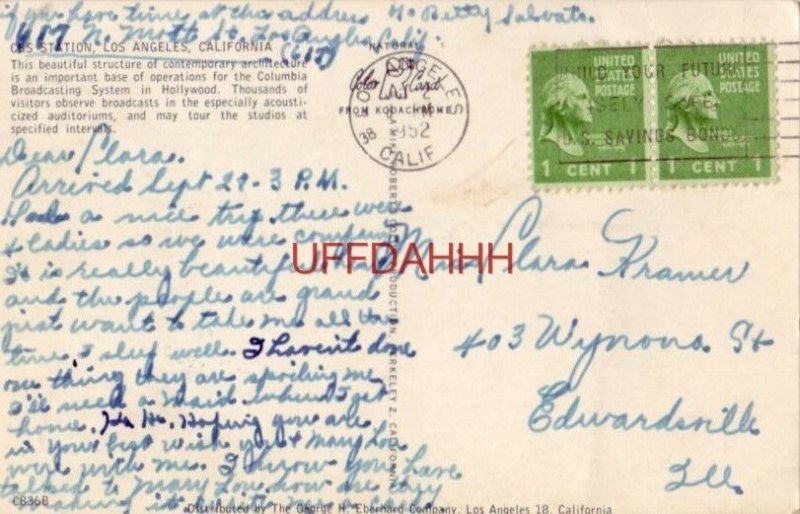 if you have time at the address % Betty Salvato.
617 N. Mott St. Los Angeles, Calif.
(617)
CBS STATION, LOS ANGELES, CALIFORNIA
This beautiful structure of contemporary architecture
is an important base of operations for the Columbia
Broadcasting System in Hollywood. Thousands of
visitors observe broadcasts in the especially acousti-
cized auditoriums, and may tour the studios at
specified intervals.
NATURAL
Color Card
FROM KODACHROME
LOS ANGELES
38
1952
CALIF
BUILD YOUR FUTURE
WISELY SAFELY
U.S. SAVINGS BONDS
UNITED
STATES
POSTAGE
1 CENT 1
UNITED
STATES
POSTAGE
1 CENT 1
Dear Clara.
Arrived Sept 29 - 3 P.M.
Had a nice trip, there were
4 ladies so we were company
it is really beautiful
and the people are grand
just want to take me all the
time, I sleep well. I havent done
one thing they are spoiling me
I'll need a maid when I get
home. Ha Ha. Hoping you are
in your best wish you & Mary Lou
were with me. I know you have
talked to Mary Lou, how are
taking it write me a card
Miss Clara Kramer
403 Wynona St
Edwardsville
Ill
UFFDAHHH
CB36B
Distributed by The George H. Eberhard Company, Los Angeles 18, California